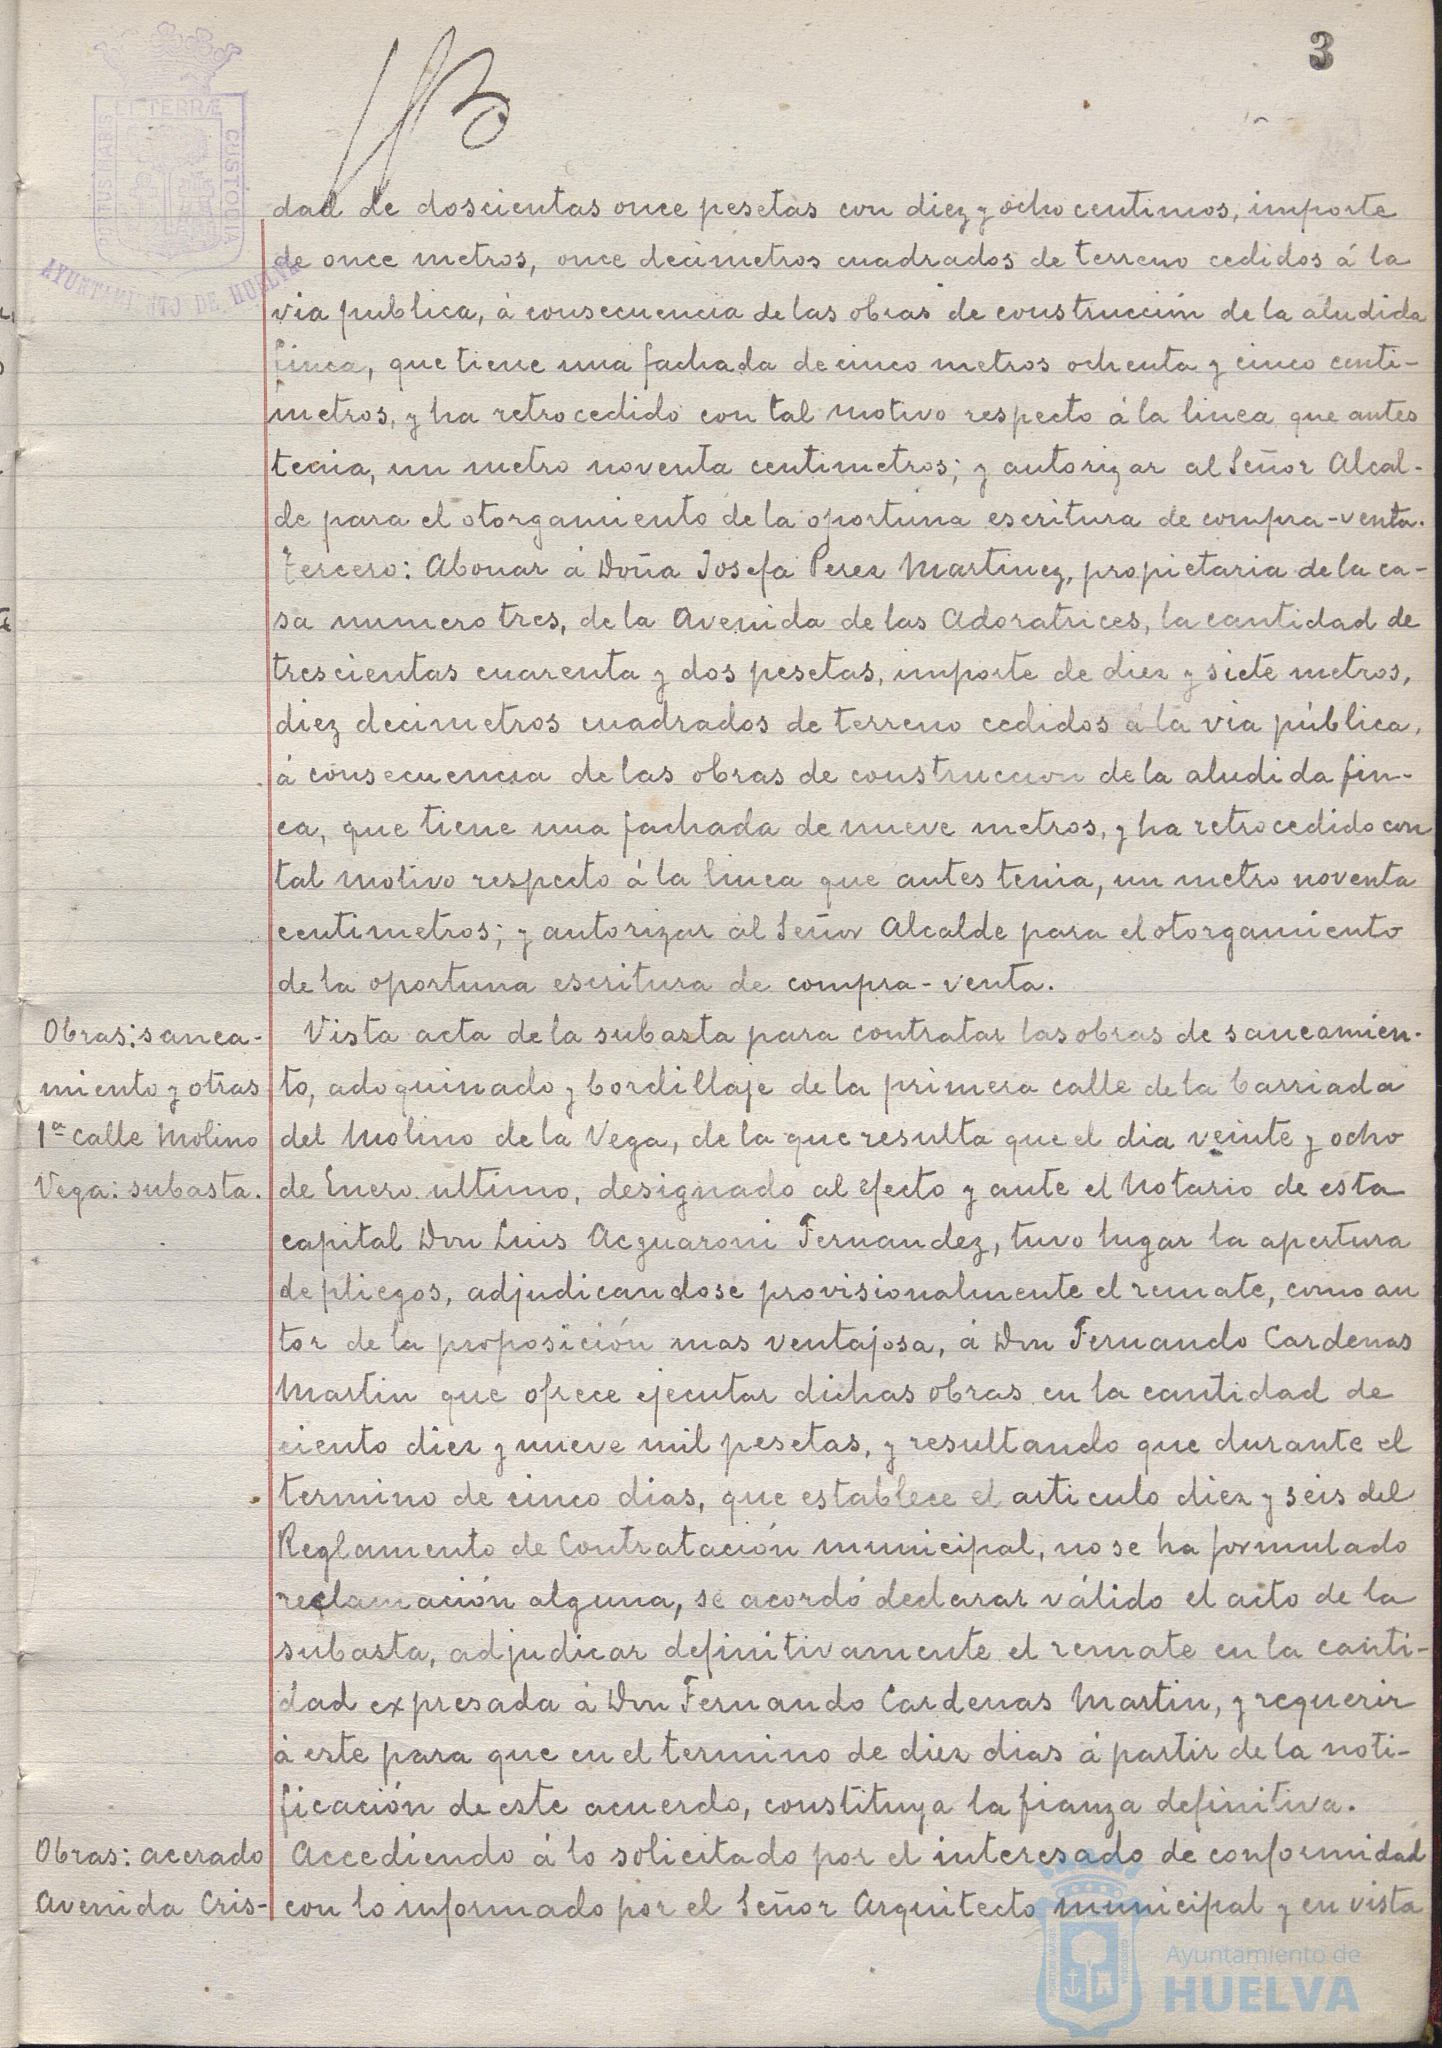 3
ET TERRÆ
PORTUS MARIS
CUSTODIA
AYUNTAMIENTO DE HUELVA
dad de doscientas once pesetas con diez y ocho centimos, importe
de once metros, once decimetros cuadrados de terreno cedidos á la
via publica, á consecuencia de las obras de construcción de la aludida
finca, que tiene una fachada de cinco metros ochenta y cinco centi-
metros, y ha retrocedido con tal motivo respecto á la linea que antes
tenia, un metro noventa centimetros; y autorizar al Señor Alcal-
de para el otorgamiento de la oportuna escritura de compra-venta.
Tercero: Abonar á Doña Josefa Perez Martinez, propietaria de la ca-
sa numero tres, de la Avenida de las Adoratrices, la cantidad de
trescientas cuarenta y dos pesetas, importe de diez y siete metros,
diez decimetros cuadrados de terreno cedidos á la via pública,
á consecuencia de las obras de construccion de la aludida fin-
ca, que tiene una fachada de nueve metros, y ha retrocedido con
tal motivo respecto á la linea que antes tenia, un metro noventa
centimetros; y autorizar al Señor Alcalde para el otorgamiento
de la oportuna escritura de compra-venta.
Obras: sanea-
miento y otras
1ª calle Molino
Vega: subasta.
Vista acta de la subasta para contratar las obras de saneamien-
to, adoquinado y bordillaje de la primera calle de la barriada
del Molino de la Vega, de la que resulta que el dia veinte y ocho
de Enero ultimo, designado al efecto y ante el Notario de esta
capital Don Luis Acguaroni Fernandez, tuvo lugar la apertura
de pliegos, adjudicandose provisionalmente el remate, como au
tor de la proposición mas ventajosa, á Don Fernando Cardenas
Martin que ofrece ejecutar dichas obras en la cantidad de
ciento diez y nueve mil pesetas, y resultando que durante el
termino de cinco dias, que establece el articulo diez y seis del
Reglamento de Contratación municipal, no se ha formulado
reclamación alguna, se acordó declarar válido el acto de la
subasta, adjudicar definitivamente el remate en la canti-
dad expresada á Don Fernando Cardenas Martin, y requerir
á este para que en el termino de diez dias á partir de la noti-
ficación de este acuerdo, constituya la fianza definitiva.
Obras: acerado
Avenida Cris-
Accediendo á lo solicitado por el interesado de conformidad
con lo informado por el Señor Arquitecto municipal y en vista
Ayuntamiento de
HUELVA